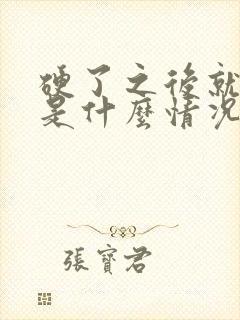 硬了之後就
是什麼情況
張寶君